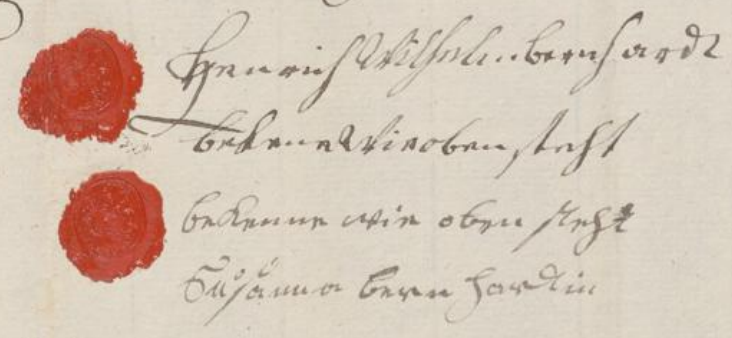 Henrich Wilhelm bernhardt
bekene Wie oben steht
bekenne wie oben steht
Susanna bern hardin